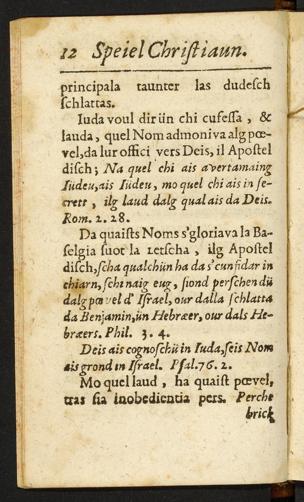 12 Speiel Christiaun.
principala taunter las dudesch
schlattas.
Iuda voul dir ün chi cufessa, &
lauda, quel Nom admoniva alg pœ-
vel, da lur offici vers Deis, il Apostel
disch; Na quel chi ais avertamaing
Iüdeu, ais Iüdeu, mo quel chi ais in se-
crett, ilg laud dalg qual ais da Deis.
Rom. 2. 28.
Da quaists Noms s'gloriava la Ba-
selgia suot la Letscha, ilg Apostel
disch, scha qualchün ha da s'cunfidar in
chiarn, schi naig eug, siond perschen dü
dalg pœvel d' Israel, our dalla schlatta
da Benjamin, ün Hebræer, our dals He-
bræers. Phil. 3. 4.
Deis ais cognoschü in Iuda, seis Nom
ais grond in Israel. Psal. 76. 2.
Mo quel laud, ha quaist pœvel,
tras sia inobedientia pers. Perche
brick